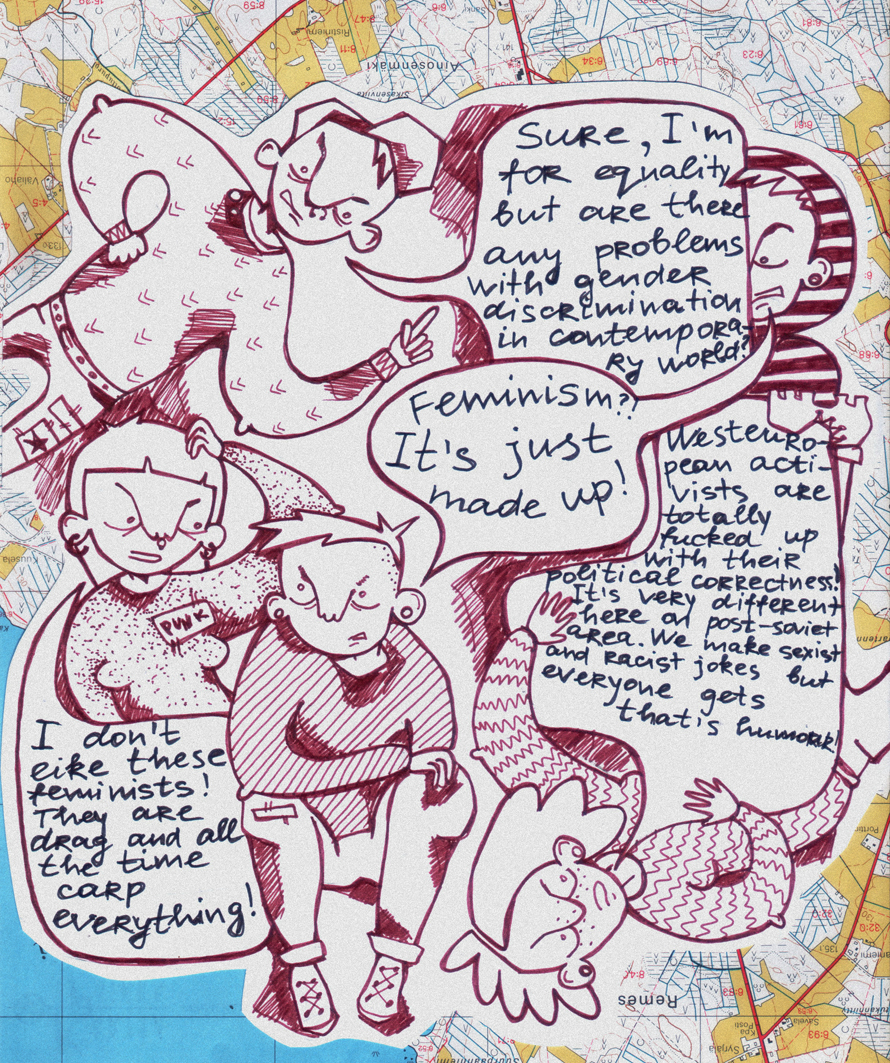 Ainasenmäki
Sikasenvirta
Sure, I'm
for equality
but are there
any problems
with gender
discrimination
in contempora-
ry world?
Feminism??
It's just
made up!
Westeuro-
pean acti-
vists are
totally
fucked up
with their
political correctness!
It's very different
here on post-soviet
area. We make sexist
and racist jokes but
everyone gets
that's humour!
PUNK
I don't
like these
feminists!
They are
drag and all
the time
carp
everything!
Kuusela
Remes
Savela
Kpa
Posti
Syrjälä